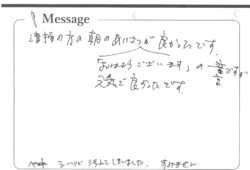 Message
清掃の方の朝のあいさつが良かったです。
「おはようございます」の一言ですが
元気で良かったです。
シーツが汚れてしまいました。すみません